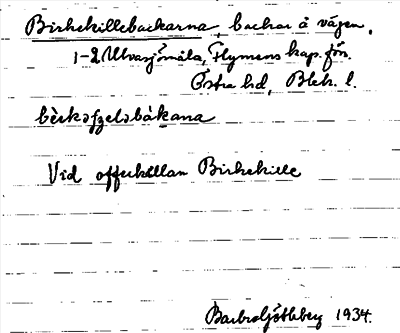 Birkekillebackarna, backar å vägen,
1-2 Utvasjömåla, Flymens kap. förs.
Östra hd, Blek. l.
Vid offerkällan Birkekille
Barbro Götleberg 1934.